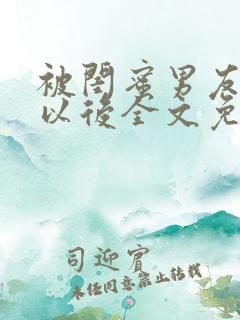 被閨蜜男友
以後全文免
司迎賓
未经同意禁止转载